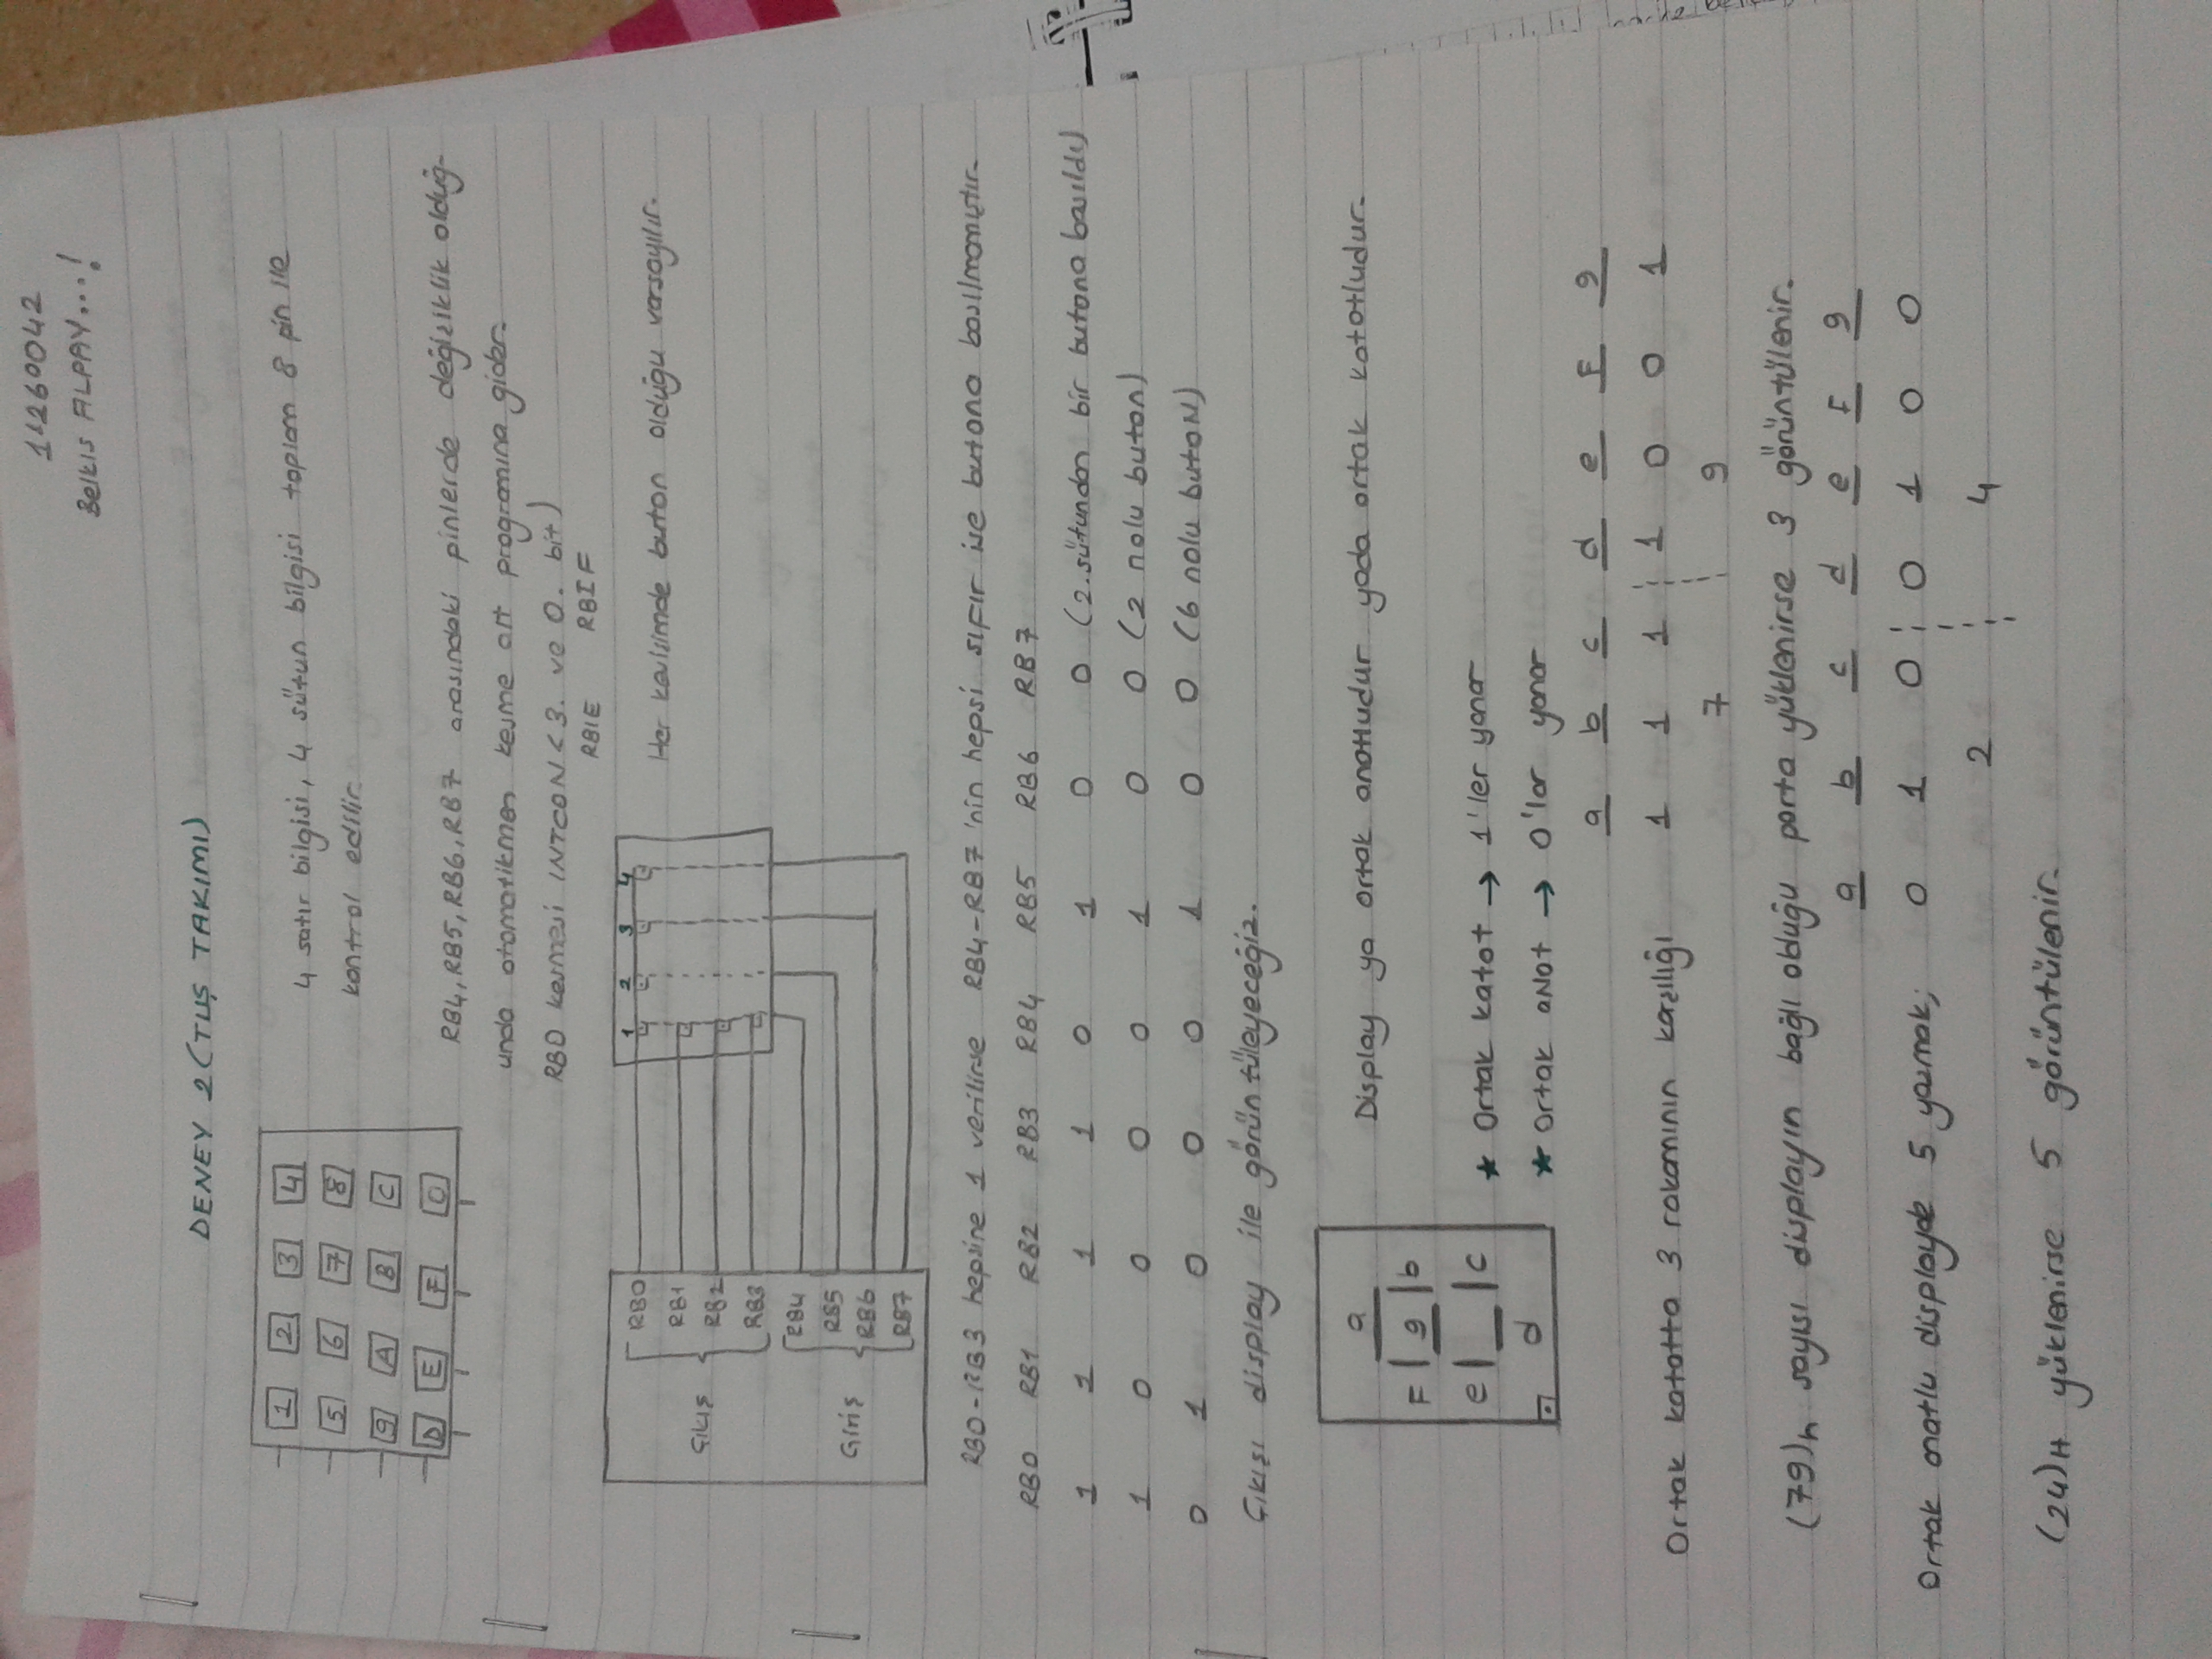 11260042
Belkıs ALPAY...!
DENEY 2 (TUŞ TAKIMI)
1 2 3 4
5 6 7 8
9 A B C
D E F 0
4 satır bilgisi, 4 sütun bilgisi toplam 8 pin ile
kontrol edilir.
RB4, RB5, RB6, RB7 arasındaki pinlerde değişiklik olduğ-
unda otomatikmen kesme alt programına gider.
RB0 kesmesi INTCON < 3. ve 0. bit)
RBIE RBIF
Çıkış
RB0
RB1
RB2
RB3
Giriş
RB4
RB5
RB6
RB7
1 2 3 4
Her kesisimde buton olduğu varsayılır.
RB0-RB3 hepsine 1 verilirse RB4-RB7'nin hepsi sıfır ise butona basılmamıştır.
RB0 RB1 RB2 RB3 RB4 RB5 RB6 RB7
1 1 1 1 0 1 0 0 (2. sütundan bir butona basıldı)
1 0 0 0 0 1 0 0 (2 nolu buton)
0 1 0 0 0 1 0 0 (6 nolu butoN)
Çıkışı display ile görüntüleyeceğiz.
a
F g b
e c
d
Display ya ortak anotludur yada ortak katotludur.
★ Ortak katot → 1'ler yanar
★ Ortak aNot → 0'lar yanar
a b c d e F g
Ortak katotta 3 rakamının karşılığı 1 1 1 1 0 0 1
7 9
(79)h sayısı displayın bağlı olduğu porta yüklenirse 3 görüntülenir.
a b c d e F g
Ortak anotlu displayde 5 yazmak; 0 1 0 0 1 0 0
2 4
(24)H yüklenirse 5 görüntülenir.